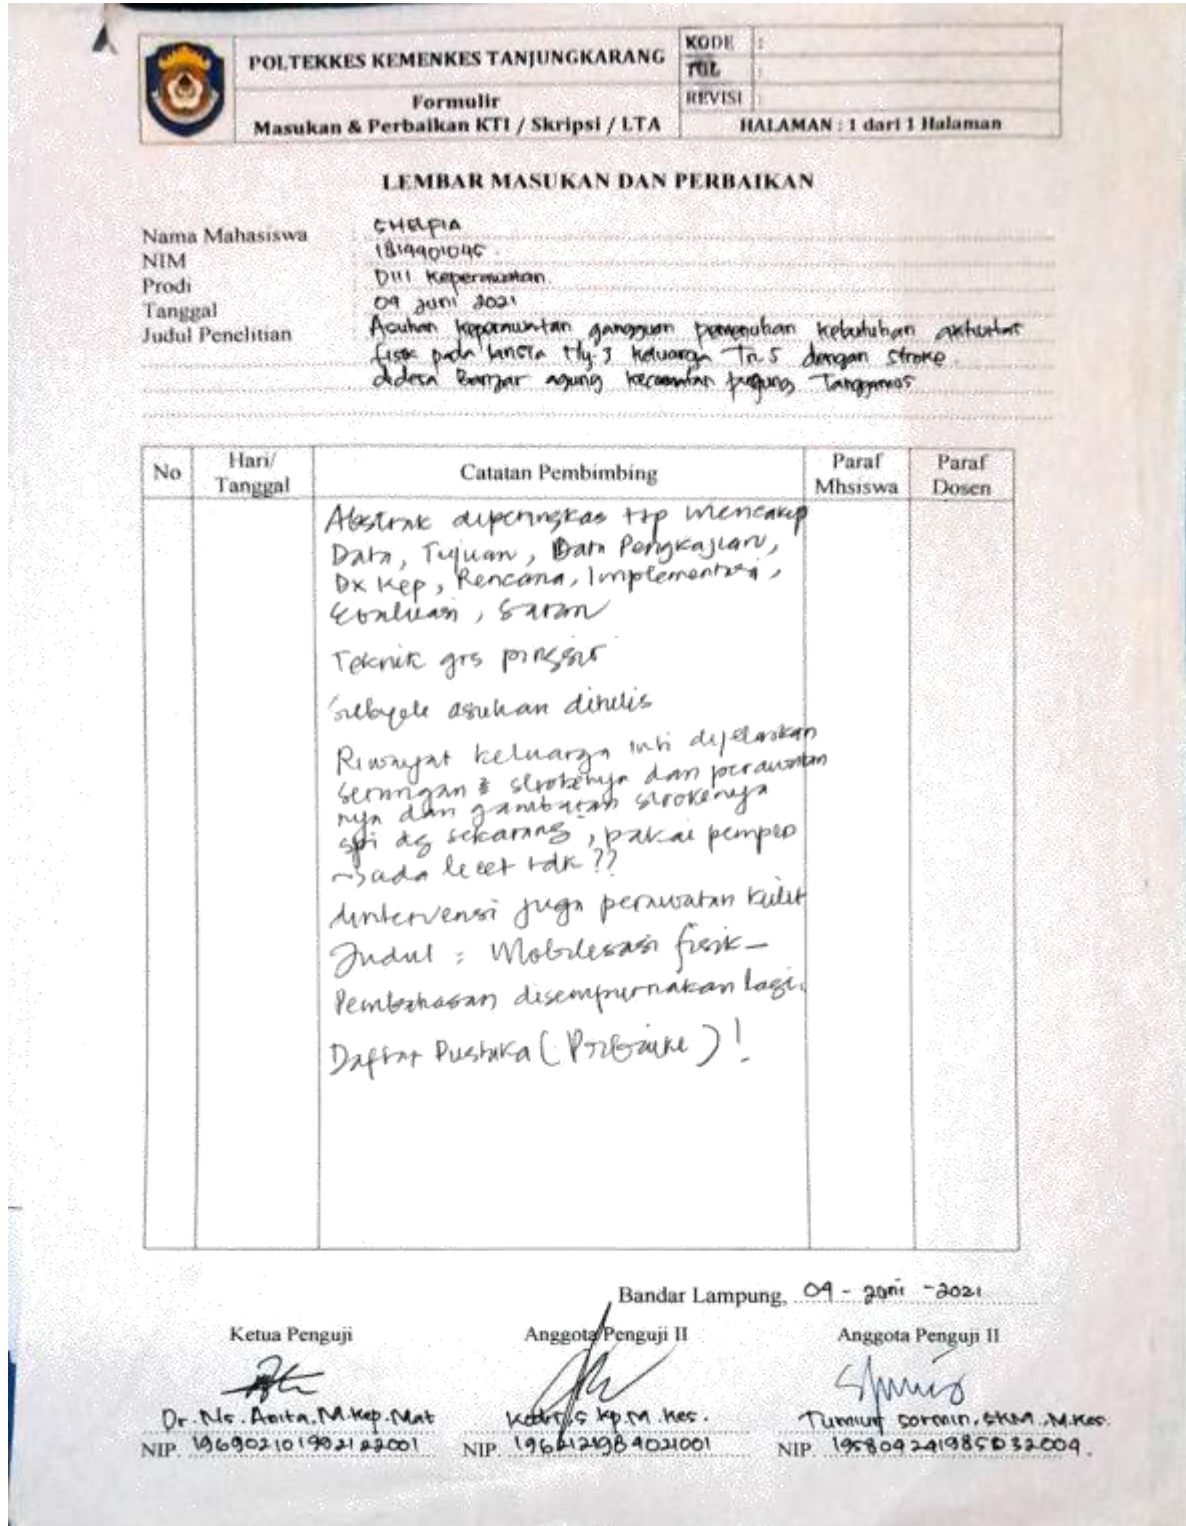 POLTEKKES KEMENKES TANJUNGKARANG
KODE :
TGL :
Formulir
Masukan & Perbaikan KTI / Skripsi / LTA
REVISI :
HALAMAN : 1 dari 1 Halaman
LEMBAR MASUKAN DAN PERBAIKAN
Nama Mahasiswa : SHELFIA
NIM : 1814401045
Prodi : DIII Keperawatan
Tanggal : 09 Juni 2021
Judul Penelitian : Asuhan keperawatan gangguan pemenuhan kebutuhan aktivitas
fisik pada lansia Ny. J keluarga Tn. S dengan stroke
didesa Banjar agung kecamatan pugung Tanggamus
No Hari/ Tanggal Catatan Pembimbing Paraf Mhsiswa Paraf Dosen
Abstrak diperingkas ttp mencakup
Data, Tujuan, Data Pengkajian,
Dx Kep, Rencana, Implementasi,
Evaluasi, Saran
Teknik
asuhan ditulis
Riwayat keluarga inti dijelaskan
serangan strokenya dan perawatan
nya dan gambaran strokenya
sekarang, pakai pempes
ada lecet tdk ??
diintervensi juga perawatan kulit
Judul : Mobilisasi fisik
Pembahasan disempurnakan lagi.
Daftar Pustaka ( ) !
Bandar Lampung, 09 - Juni - 2021
Ketua Penguji Anggota Penguji II Anggota Penguji II
Dr. Ns. Anita, M.Kep. Mat Kodri, S Kp. M. Kes. Tumiur Sormin, SKM., M.Kes.
NIP. 196902101992122001 NIP. NIP. 195809241985032004.